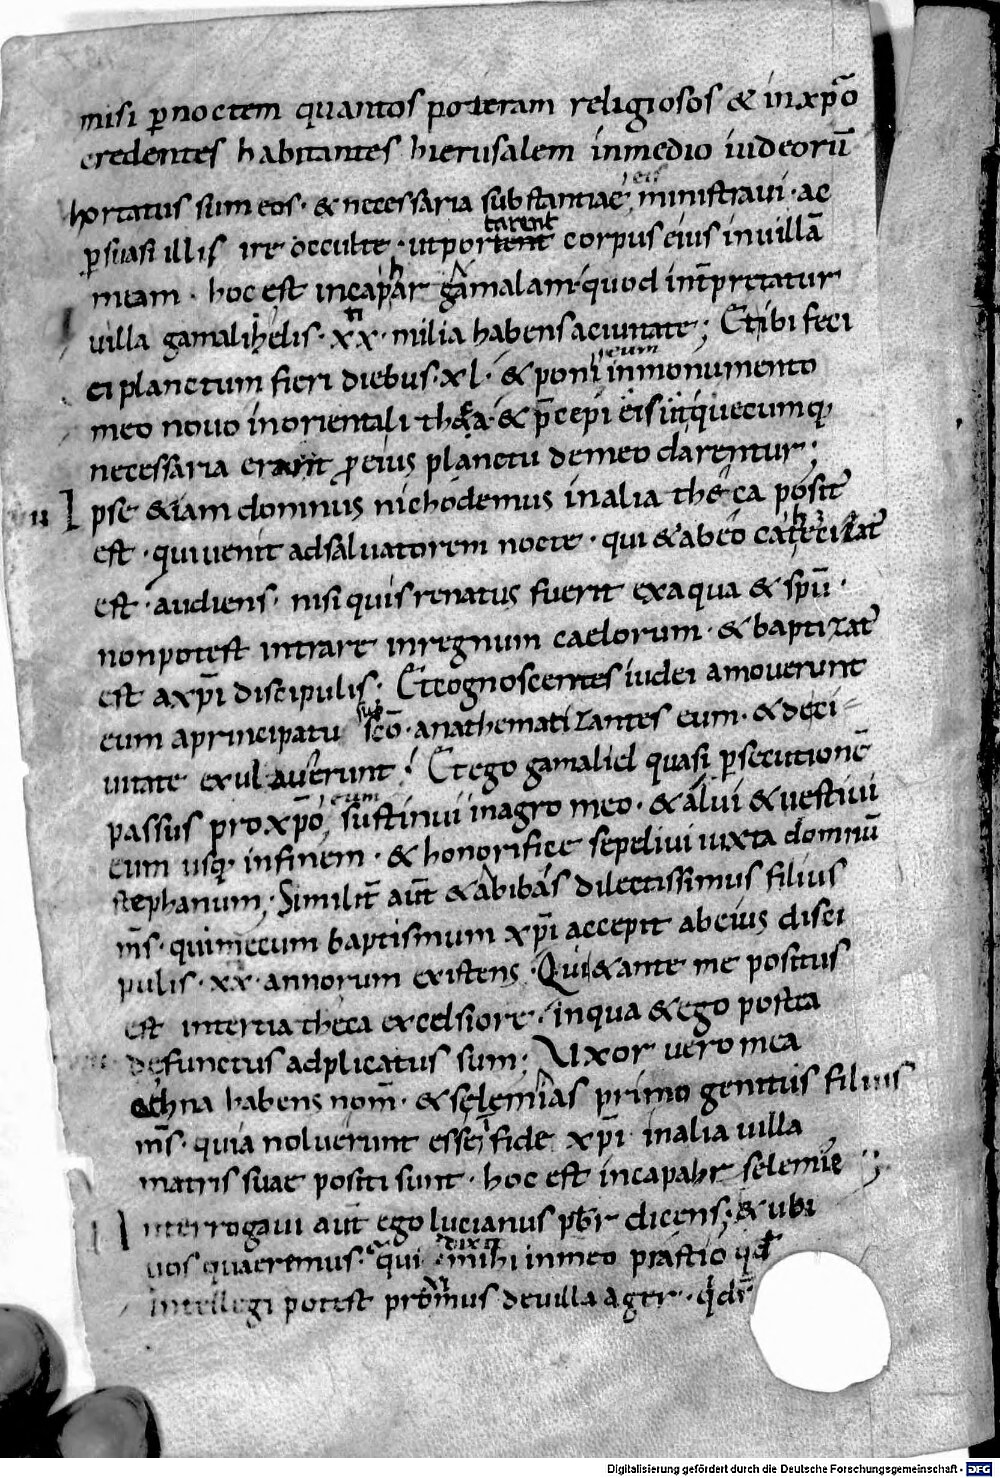 misi p̲noctem quantos poteram religiosos & inxp̄o
credentes habitantes hierusalem inmedio iudeorū
hortatus sum eos · & necessaria substantiae eis ministraui · ac
p̲suasi illis ire occulte · utportent tarent corpus eius inuillā
meam · hoc est incaphar gamalam · quod int̄pretatur
villa gamalihelis · xx · milia habens aciuitate ; Et ibi feci
ei planctum fieri diebus · xl · & poni eum inmonumento
meo nouo inorientali theca · & p̄cepi eis ut quecumq;
necessaria erant p̲ eius planctu demeo darentur ;
Ipse &iam domnus nichodemus inalia theca posit̄
est · qui uenit adsaluatorem nocte · qui & abeo
est · audiens · nisi quis renatus fuerit exaqua & sp̄u ·
nonpotest intrare inregnum caelorum · & baptizat̄
est axp̄i discipulis ; Etcognoscentes iudei amouerunt
eum aprincipatu suo · anathematizantes eum · & deci
uitate exulauerunt ; Et ego gamaliel quasi p̲secutionē
passus proxp̄o, eum sustinui inagro meo · & alui & uestiui
eum usq; infinem · & honorifice sepeliui iuxta domnū
stephanum ; Similit̄ aūt & abibas dilectissimus filius
m̄s · quimecum baptismum xp̄i accepit abeius disci
pulis · xx · annorum existens · Qui & ante me positus
est intertia theca excelsiore · inqua & ego postea
defunctus adplicatus sum ; Uxor uero mea
ethna habens nom̄ · & selemias primo genitus filius
m̄s · quia noluerunt esse i fide xp̄i inalia uilla
matris suae positi sunt · hoc est incapahr selemie ;
Interrogaui aūt ego lucianus pb̄r dicens ; & ubi
uos quaeremus · qui dixit mihi inmeo prastio qđ
intellegi potest deuilla ager · qđ